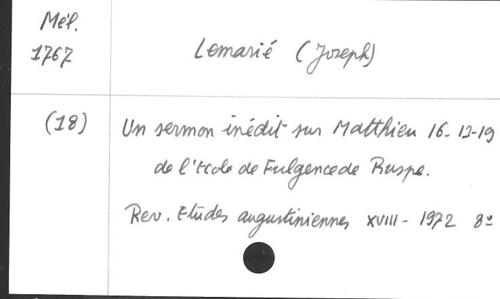 Mél.
1767
Lemarié (Joseph)
(18)
Un sermon inédit sur Matthieu 16-13-19
de l'Ecole de Fulgence de Ruspe.
Rev. Etudes augustiniennes XVIII - 1972 8º